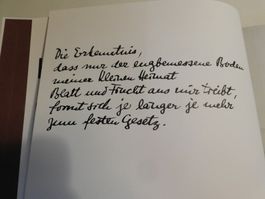 Die Erkenntnis,
dass nur der engbemessene Boden
meiner kleinen Heimat
Blatt und Frucht aus mir treibt,
formt sich je länger je mehr
zum festen Gesetz.